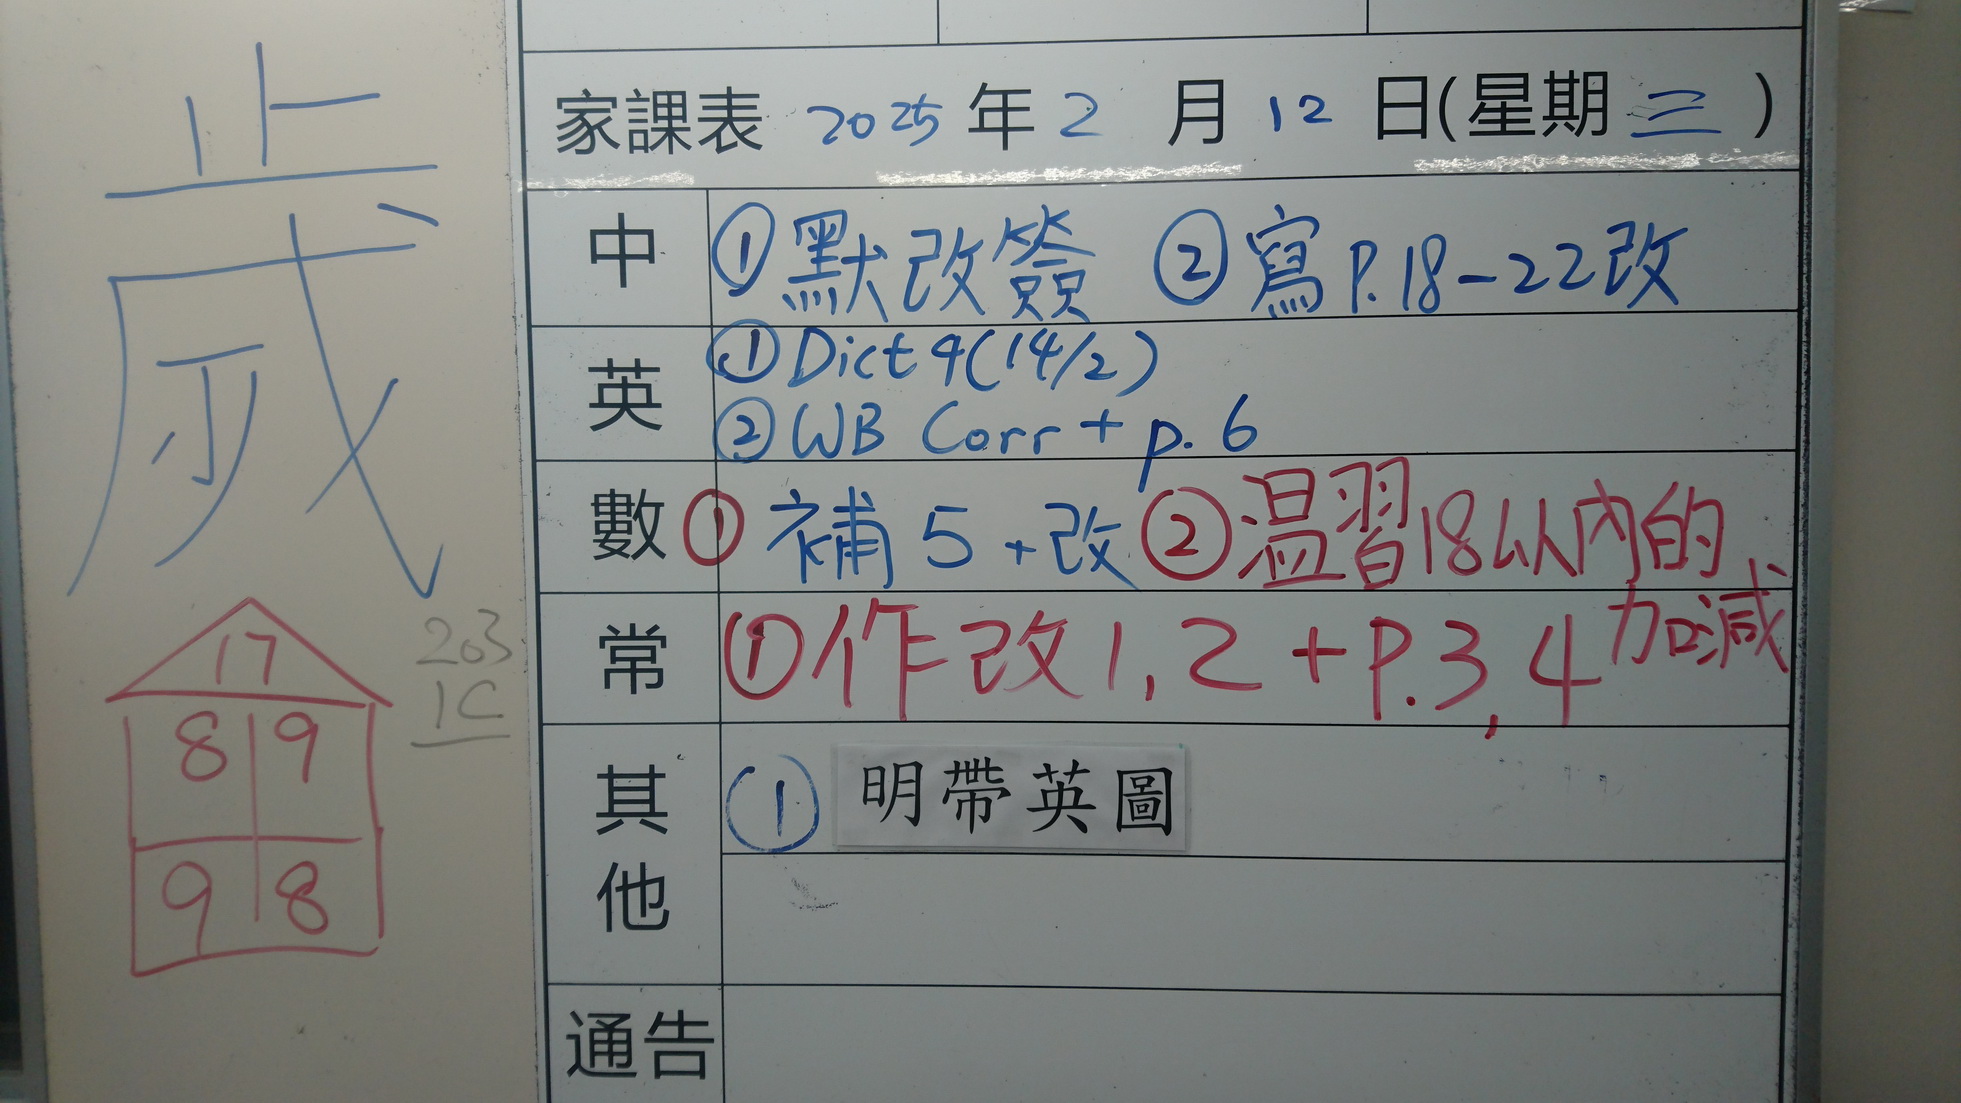 歲
17
8 9
9 8
203
1C
家課表 2025 年 2 月 12 日(星期 三 )
中 ①默改簽 ②寫P.18-22改
英 ①Dict 9(14/2)
②WB Corr + p. 6
數 ①補5+改 ②温習18以內的
加減
常 ①作改1,2+P.3,4
其他 ① 明帶英圖
通告